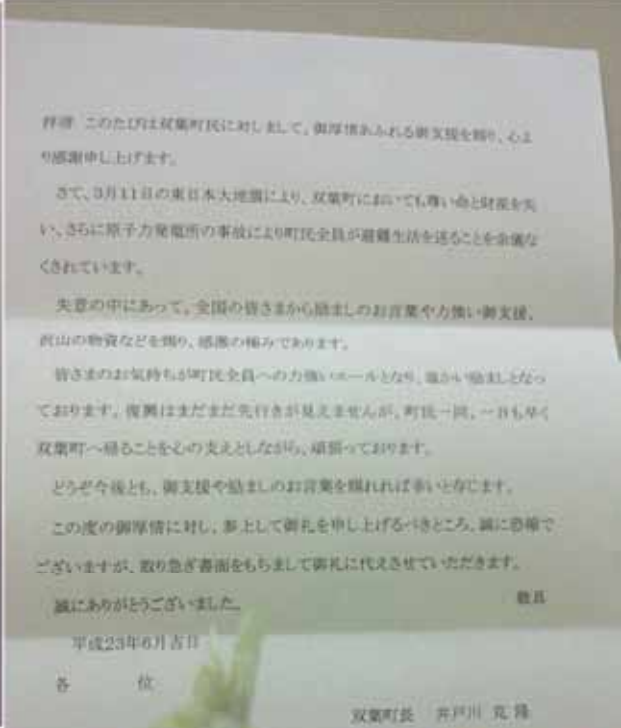 拝啓 このたびは双葉町民に対しまして、御厚情あふれる御支援を賜り、心よ
り感謝申し上げます。
さて、3月11日の東日本大地震により、双葉町においても尊い命と財産を失
い、さらに原子力発電所の事故により町民全員が避難生活を送ることを余儀な
くされています。
失意の中にあって、全国の皆さまから励ましのお言葉や力強い御支援、
沢山の物資などを賜り、感激の極みであります。
皆さまのお気持ちが町民全員への力強いエールとなり、温かい励ましとなっ
ております。復興はまだまだ先行きが見えませんが、町民一同、一日も早く
双葉町へ帰ることを心の支えとしながら、頑張っております。
どうぞ今後とも、御支援や励ましのお言葉を賜れれば幸いと存じます。
この度の御厚情に対し、参上して御礼を申し上げるべきところ、誠に恐縮で
ございますが、取り急ぎ書面をもちまして御礼に代えさせていただきます。
誠にありがとうございました。 敬具
平成23年6月吉日
各 位
双葉町長 井戸川 克隆